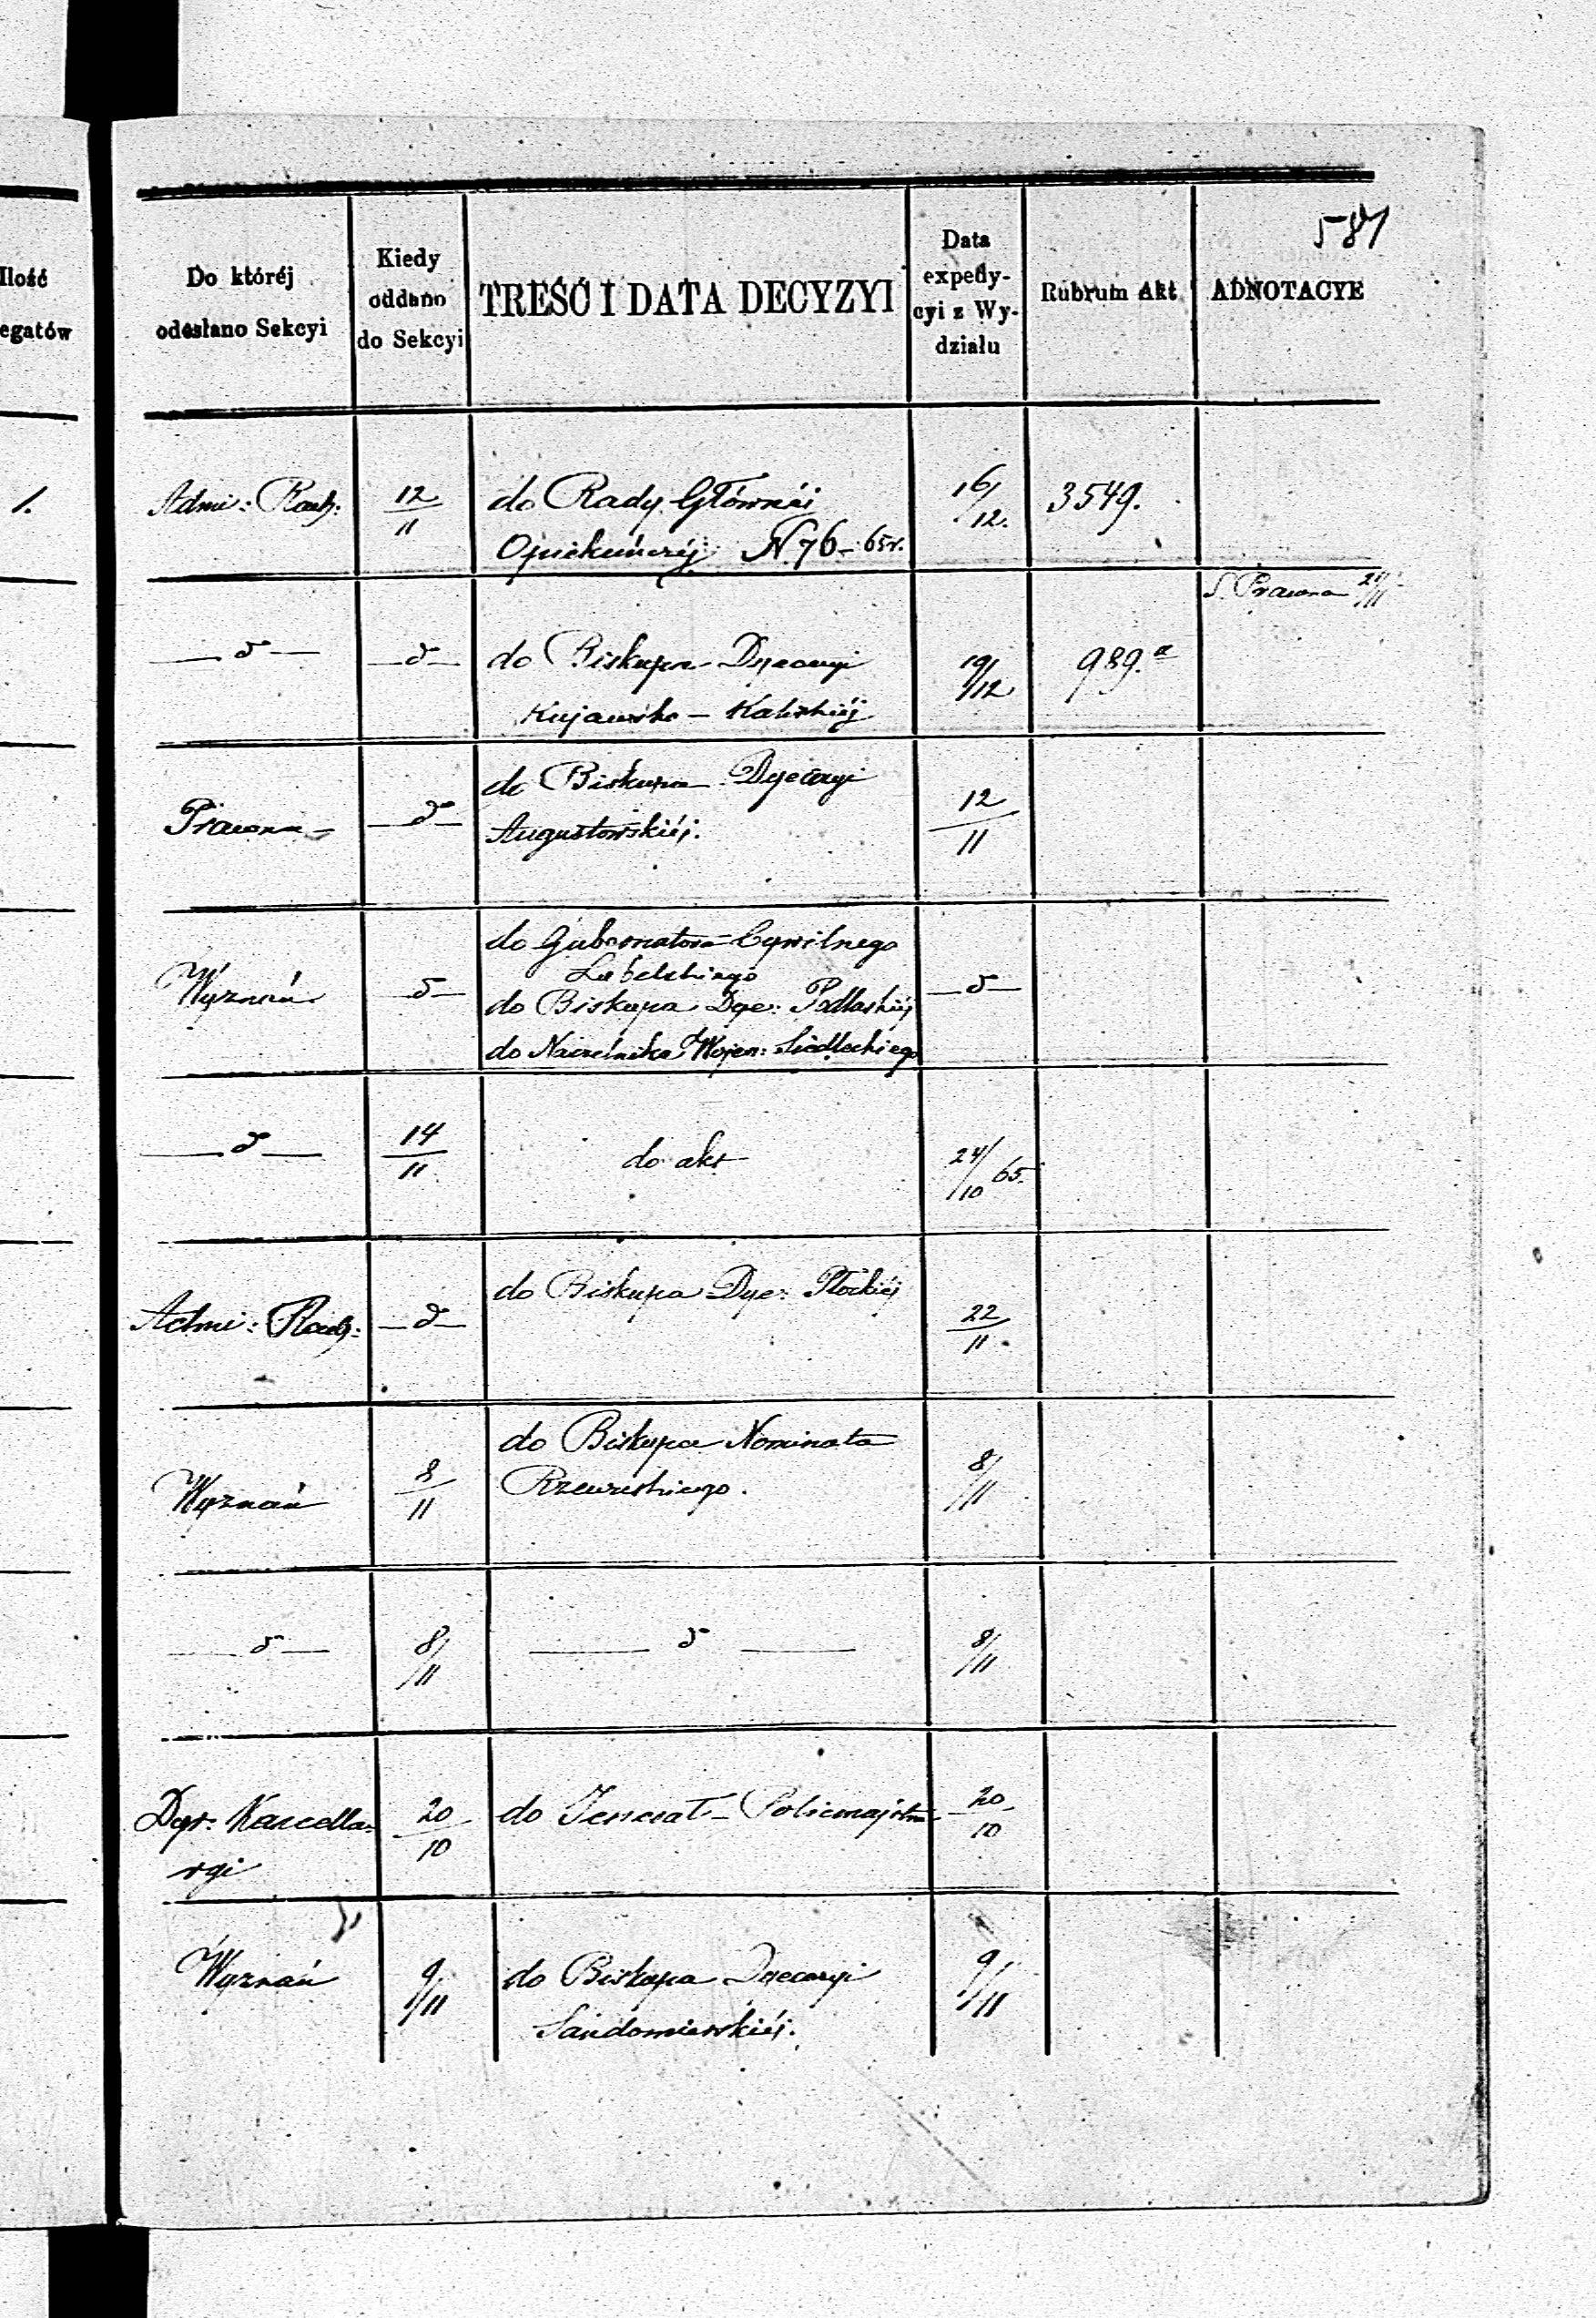 587
Ilość
egatów
Do któréj
odesłano Sekcyi
Kiedy
oddano
do Sekcyi
TREŚĆ I DATA DECYZYI
Data
expedy-
cyi z Wy-
działu
Rubrum Akt
ADNOTACYE
1.
Admi: Rach:
12/11
do Rady Głównéj
Opiekuńczéj N. 76 - 65r.
16/12.
3549.
S. Prawna
— d° —
— d° —
do Biskupa Dyecezyi
Kujawsko - Kaliskiéj
19/12
989.a
Prawna -
— d° —
do Biskupa Dyecezyi
Augustowskiéj.
12/11
Wyznań
— d° —
do Gubernatora Cywilnego
Lubelskiego
do Biskupa Dye: Podlaskiéj
do Naczelnika Wojen: Siedleckiego
— d° —
— d° —
14/11
do akt
24/10 65.
Admi: Rach:
— d° —
do Biskupa Dye: Płockiéj
22/11.
Wyznań
8/11
do Biskupa Nominata
Rzewuskiego.
8/11
— d° —
8/11
— d° —
8/11
Dyr: Kancella-
ryi
20/10
do Jenerał - Policmajstra
20/10
Wyznań
9/11
do Biskupa Dyecezyi
Sandomierskiéj.
9/11